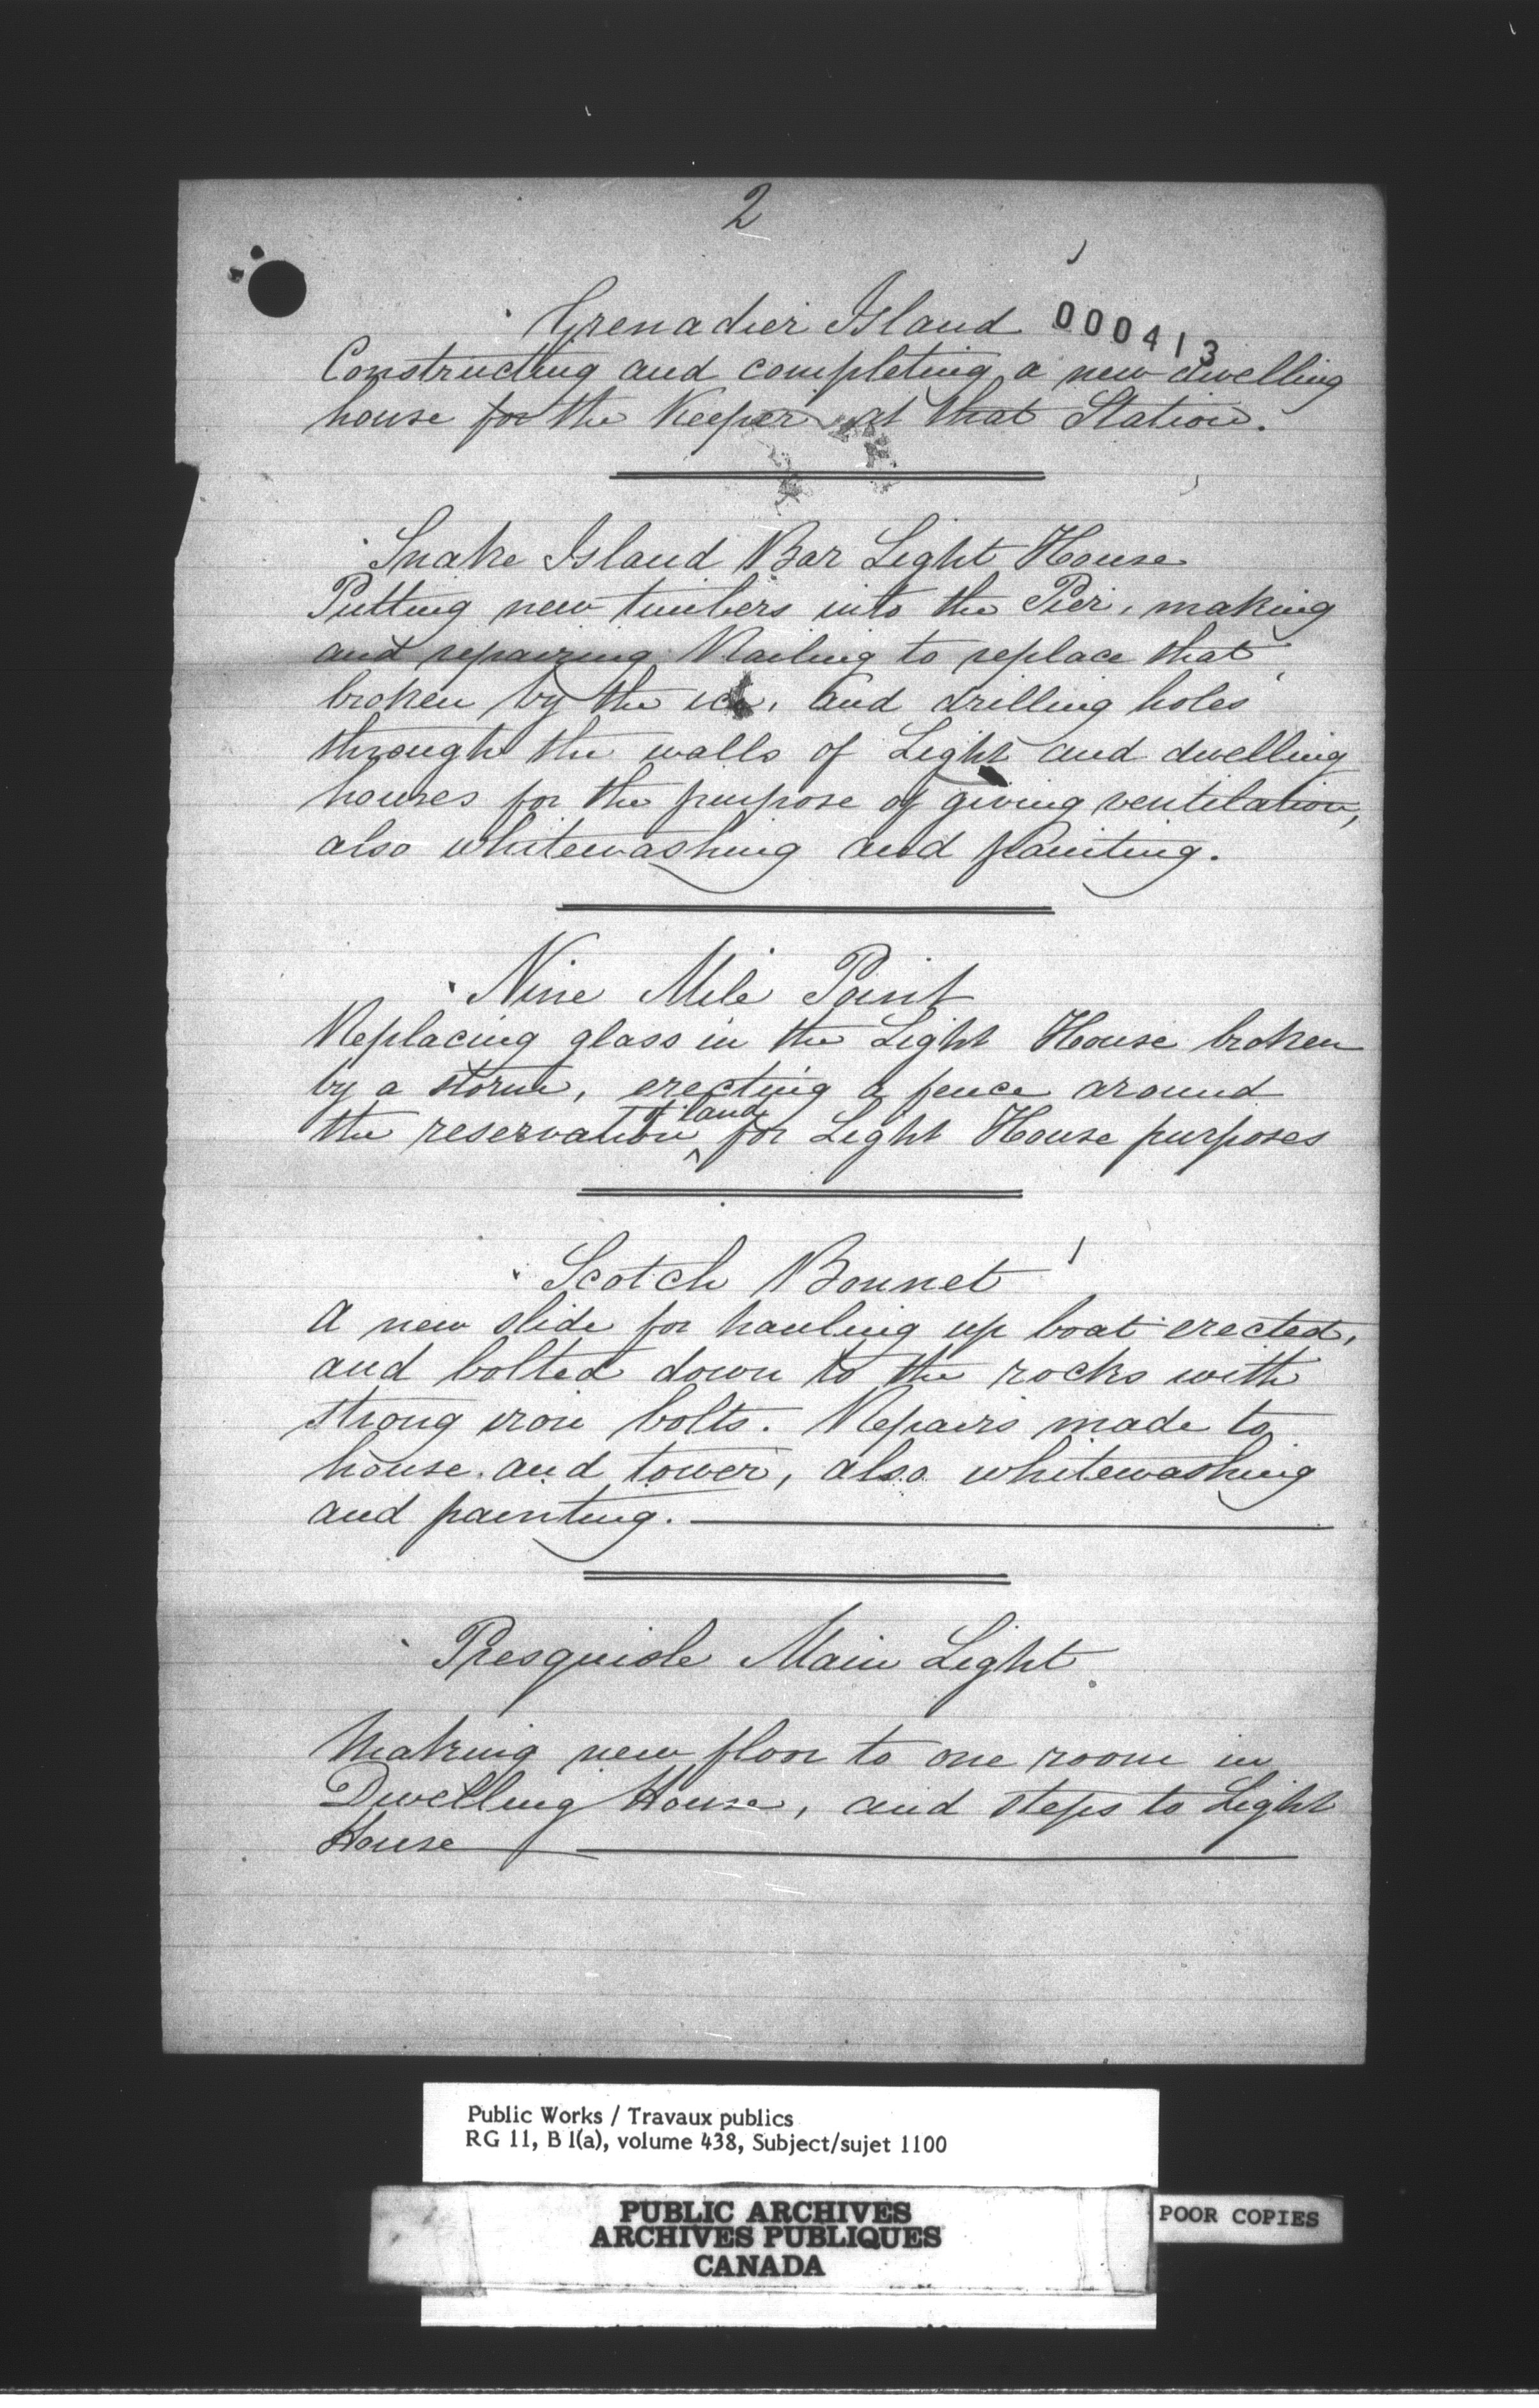 2
Grenadier Island
000413
Constructing and completing a new dwelling
house for the Keeper at that Station.
Snake Island Bar Light House
Putting new timbers into the Pier, making
and repairing Railing to replace that
broken by the ice, and drilling holes
through the walls of Light and dwelling
houses for the purpose of giving ventilation,
also whitewashing and painting.
Nine Mile Point
Replacing glass in the Light House broken
by a storm, erecting a fence around
the reservation of land for Light House purposes
Scotch Bonnet
A new slide for hauling up boat erected,
and bolted down to the rocks with
strong iron bolts. Repairs made to
house and tower, also whitewashing
and painting.
Presquisle Main Light
Making new floor to one room in
Dwelling House, and steps to Light
House
Public Works / Travaux publics
RG 11, B 1(a), volume 438, Subject/sujet 1100
PUBLIC ARCHIVES
ARCHIVES PUBLIQUES
CANADA
POOR COPIES